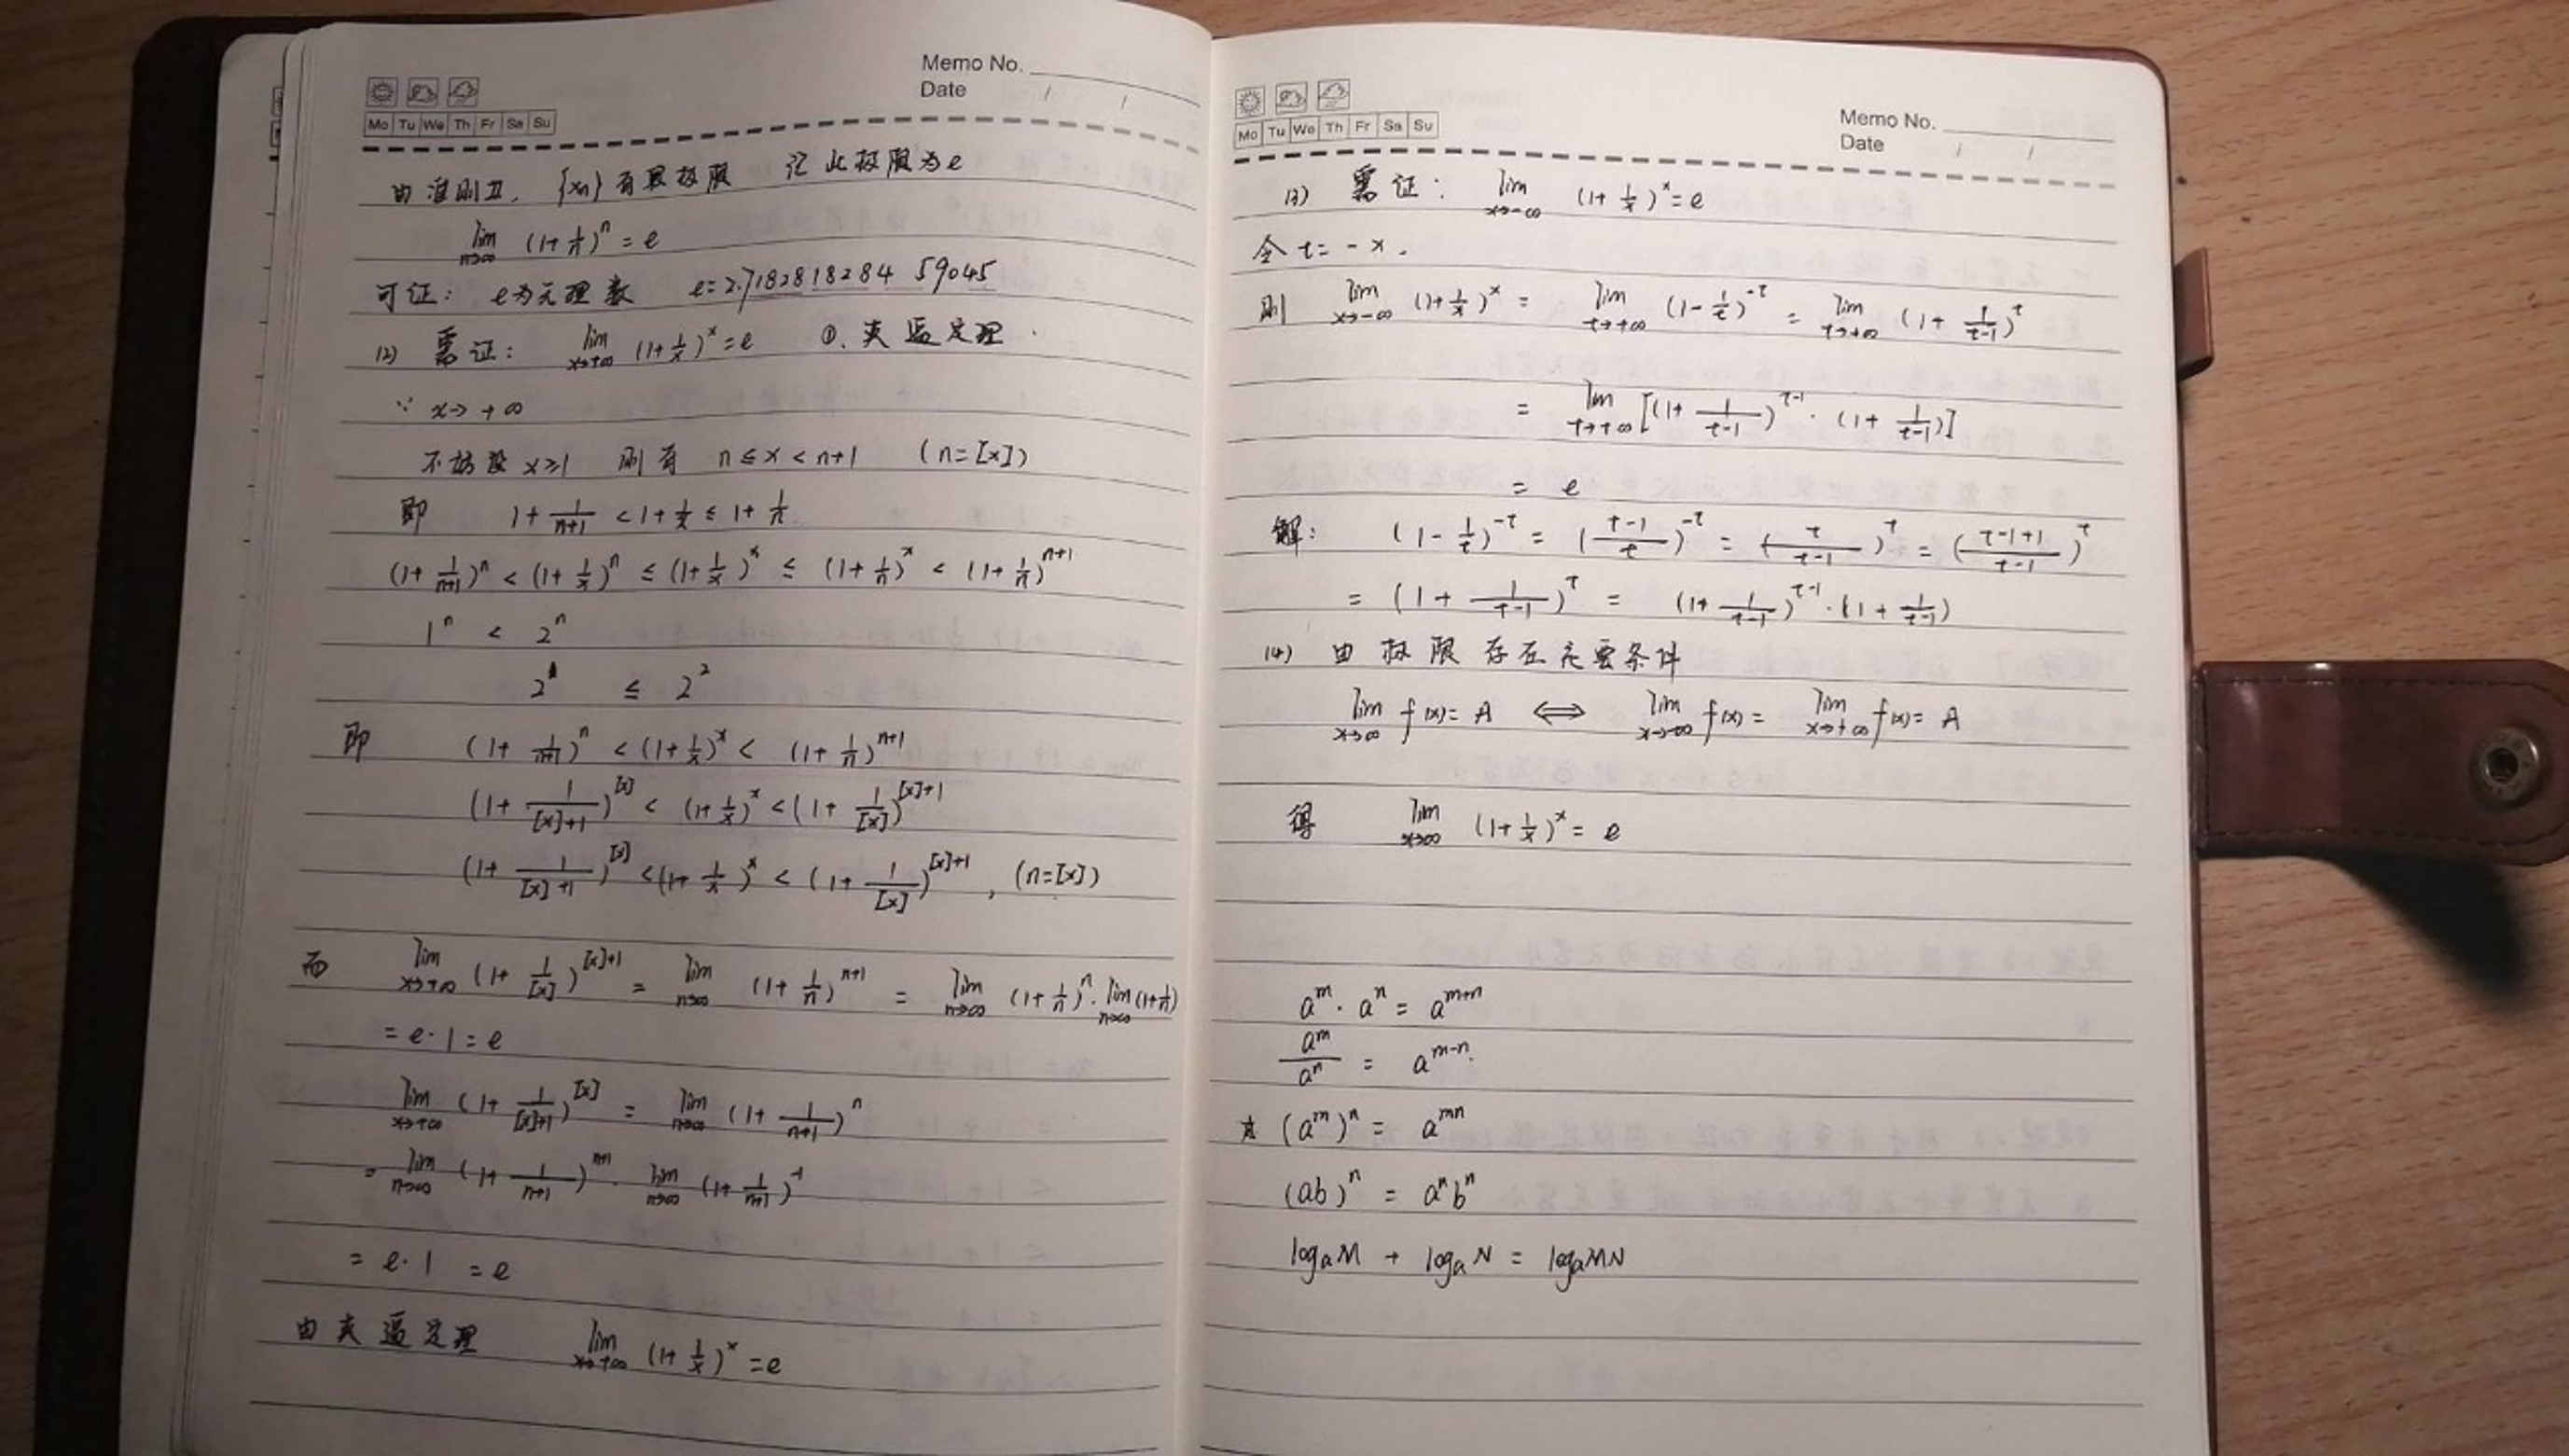 Memo No.
Date / /
Mo Tu We Th Fr Sa Su
由准则II, {xn}有界极限 记此极限为e
lim n→∞ (1+1/n)^n = e
可证: e为无理数 e=2.7182818284 59045
(2) 需证: lim x→+∞ (1+1/x)^x = e ①. 夹逼定理.
∵ x→+∞
不妨设 x≥1 则有 n≤x<n+1 (n=[x])
即 1+1/(n+1) < 1+1/x ≤ 1+1/n
(1+1/(n+1))^n < (1+1/x)^n ≤ (1+1/x)^x ≤ (1+1/n)^x < (1+1/n)^(n+1)
1^n < 2^n
2^1 ≤ 2^2
即 (1+1/(n+1))^n < (1+1/x)^x < (1+1/n)^(n+1)
(1+1/([x]+1))^[x] < (1+1/x)^x < (1+1/[x])^([x]+1)
(1+1/([x]+1))^[x] < (1+1/x)^x < (1+1/[x])^([x]+1), (n=[x])
而 lim x→+∞ (1+1/[x])^([x]+1) = lim n→∞ (1+1/n)^(n+1) = lim n→∞ (1+1/n)^n · lim n→∞ (1+1/n)
= e·1 = e
lim x→+∞ (1+1/([x]+1))^[x] = lim n→∞ (1+1/(n+1))^n
= lim n→∞ (1+1/(n+1))^(n+1) · lim n→∞ (1+1/(n+1))^-1
= e·1 = e
由夹逼定理 lim x→+∞ (1+1/x)^x = e
Memo No.
Date / /
Mo Tu We Th Fr Sa Su
(3) 需证: lim x→-∞ (1+1/x)^x = e
令 t = -x.
则 lim x→-∞ (1+1/x)^x = lim t→+∞ (1-1/t)^-t = lim t→+∞ (1+1/(t-1))^t
= lim t→+∞ [(1+1/(t-1))^(t-1) · (1+1/(t-1))]
= e
解: (1-1/t)^-t = ((t-1)/t)^-t = (t/(t-1))^t = ((t-1+1)/(t-1))^t
= (1+1/(t-1))^t = (1+1/(t-1))^(t-1) · (1+1/(t-1))
(4) 由极限存在充要条件
lim x→∞ f(x)=A ⟺ lim x→-∞ f(x) = lim x→+∞ f(x) = A
得 lim x→∞ (1+1/x)^x = e
a^m · a^n = a^(m+n)
a^m/a^n = a^(m-n).
☆ (a^m)^n = a^(mn)
(ab)^n = a^n b^n
log_a M + log_a N = log_a MN